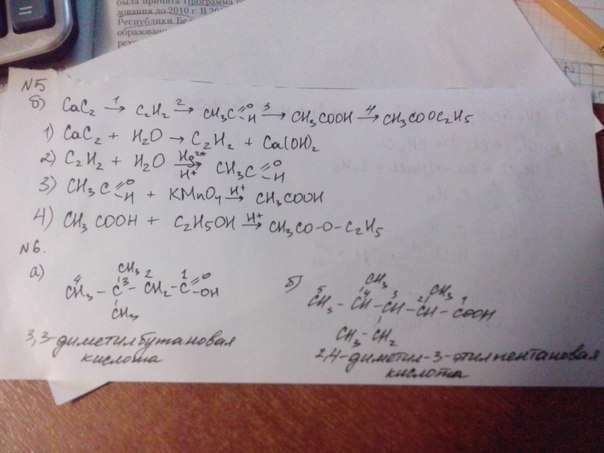 была принята Программа
жования до 2010 г. В 20
Республики Бел
образован
N5
б) CaC₂ →¹ C₂H₂ →² CH₃C=O H →³ CH₃COOH →⁴ CH₃COOC₂H₅
1) CaC₂ + H₂O → C₂H₂ + Ca(OH)₂
2) C₂H₂ + H₂O Hg²⁺ → H⁺ CH₃C=O H
3) CH₃C=O H + KMnO₄ H⁺ → CH₃COOH
4) CH₃COOH + C₂H₅OH H⁺ → CH₃CO-O-C₂H₅
N6.
а) CH₃ 2 1 O
4 CH₃ - C 3 - CH₂ - C=O OH
CH₃
3,3-диметилбутановая
кислота
б) CH₃ CH₃
5 CH₃ - 4 CH - 3 CH - 2 CH - 1 COOH
CH₃ - CH₂
2,4-диметил-3-этилпентановая
кислота